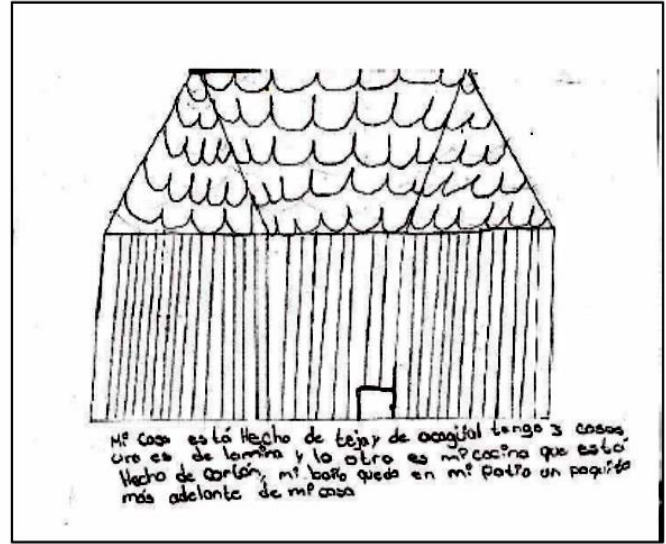 Mi casa está Hecho de teja y de acagüal tengo 3 casas
uno es de lamina y la otra es mi cocina que está
Hecho de cartón, mi baño queda en mi patio un poquito
más adelante de mi casa